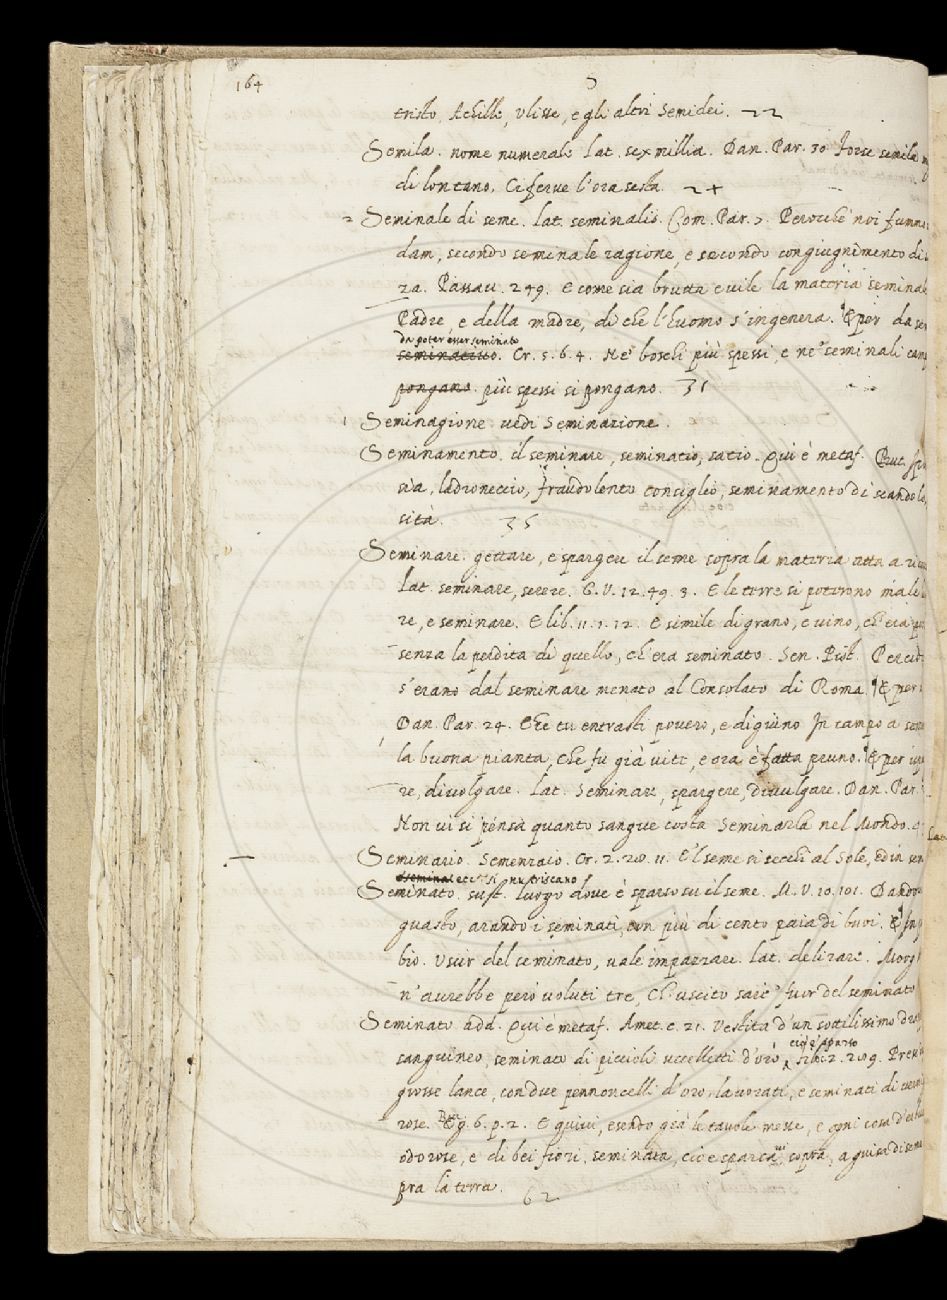 164
S
tristo, Achille, Ulisse, e gli altri Semidei. 22
Semila. nome numerale Lat. sex millia. Dan. Par. 30 Forse semila
di lontano, Ci ferve l'ora sesta 24
2 Seminale di seme. Lat. seminalis. Com. Par. 7. Perocchè noi fummo
dam, secondo seminale ragione, e secondo congiugnimento di
za. Passau. 249. E come sia brutta e vile la materia seminale
Padre, e della madre, di che l'huomo s'ingenera. & per da
da poter esser seminato
Cr. 5. 6. 4. Ne' boschi più spessi, e ne' seminali
pongano. più spessi si pongano. 31
1 Seminagione vedi Seminazione.
Seminamento. il seminare, seminatio, satio. Qui è metaf. But.
sia, ladroneccio, fraudolento consiglio, seminamento di scandolo,
sità. 35
Seminare. gettare, e spargere il seme sopra la materia atta a
Lat. seminare, serere. G. V. 12. 49. 3. E le terre si poterono male
re, e seminare. E lib. 11. 1. 12. E simile di grano, e vino, ch'era
senza la perdita di quello, ch'era seminato. Sen. Pist.
s'erano dal seminare menato al Consolato di Roma. & per
Dan. Par. 24. Che tu entrasti povero, e digiuno In campo a
la buona pianta, che fu già vite, e ora è fatta pruno. & per
re, divolgare. Lat. Seminare, spargere, divulgare. Dan. Par.
Non vi si pensa quanto sangue costa Seminarla nel Mondo.
Seminario. Semenzaio. Cr. 2. 20. 11. E'l seme si secchi al Sole, ed in
nutriscano
Seminato. sust. luogo dove è sparso su il seme. M. V. 10. 101. Dando
guasto, arando i seminati, con più di cento paia di buoi. &
bio. Uscir del seminato, vale impazzare. Lat. delirare. Morg.
n'aurebbe però voluti tre, Ch'uscito saie' fuor del seminato
Seminato add. Qui è metaf. Amet. c. 21. Vestita d'un sottilissimo
cioè sparso
sanguineo, seminato di piccioli uccelletti d'oro, 2. 209.
grosse lance, con due pennoncelli d'oro lavorati, e seminati di
rose. g. 6. p. 2. E quivi, esendo già le tavole messe, e ogni cosa d'
odorose, e di bei fiori, seminata, cioè sparsavi sopra, a guisa di
pra la terra. 62